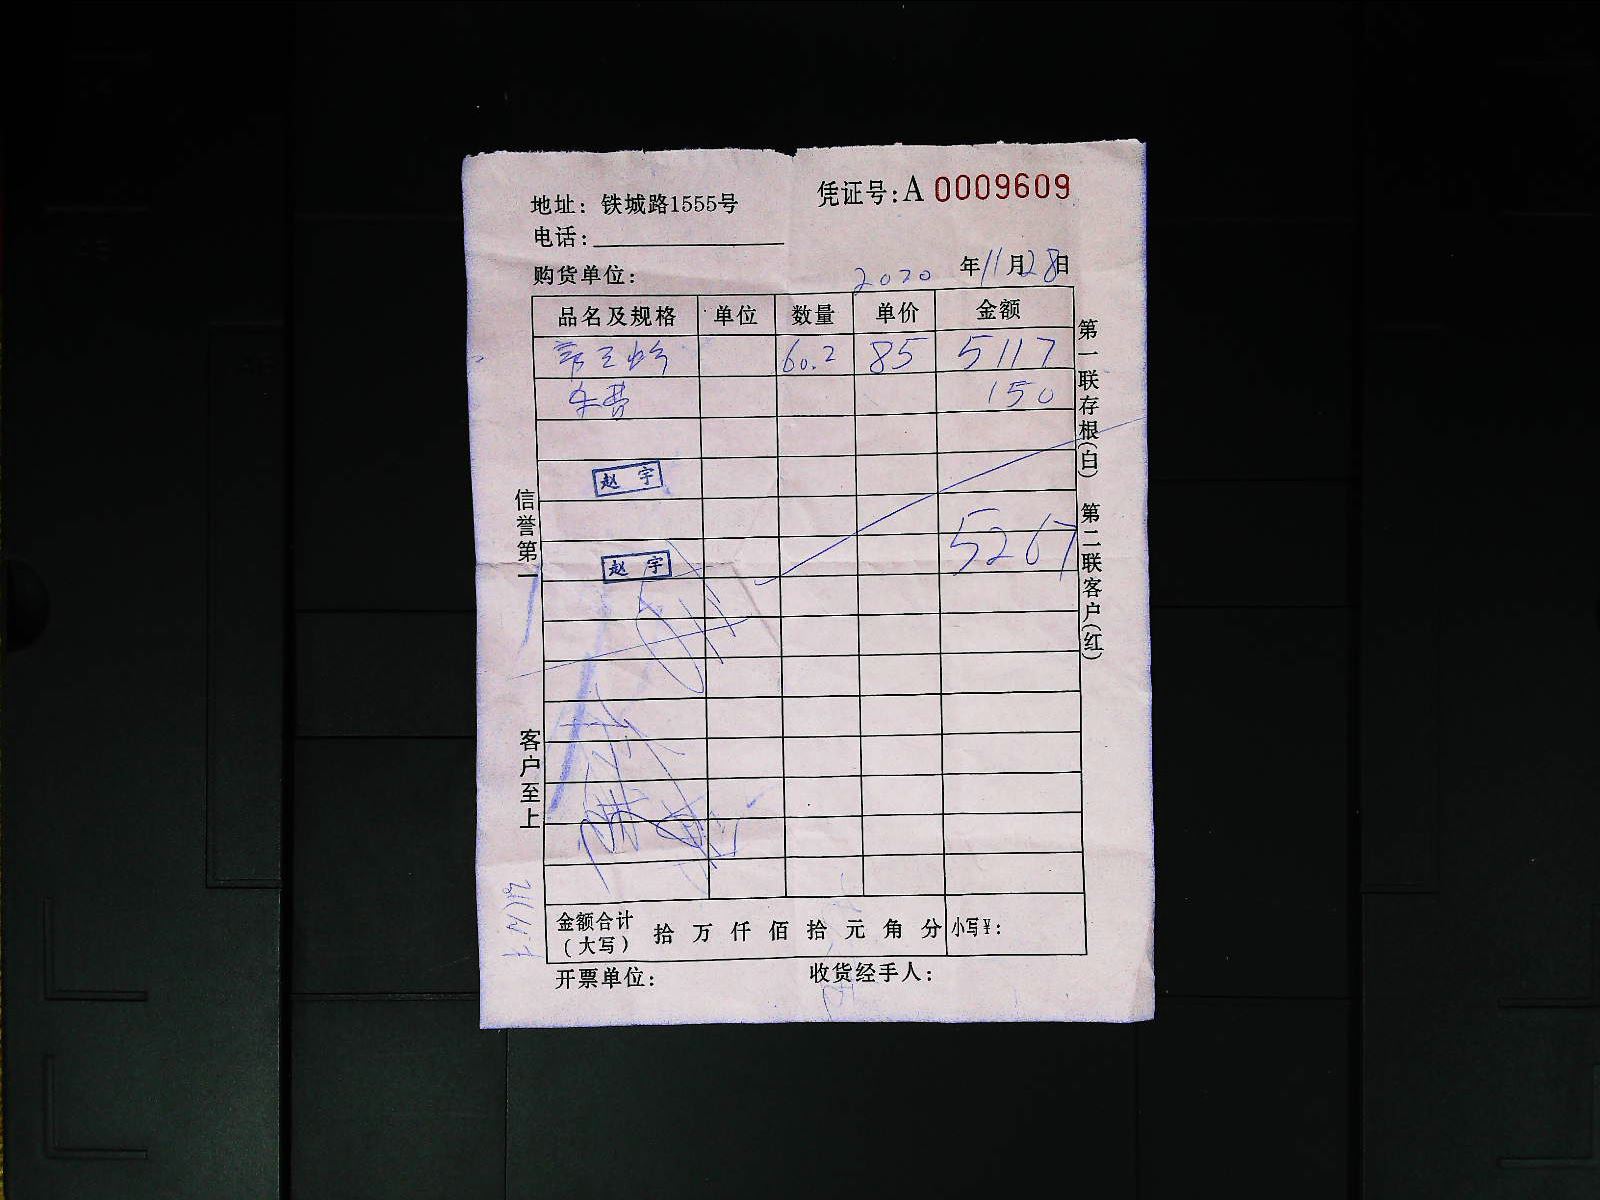 地址：铁城路1555号
凭证号：A 0009609
电话：
购货单位：
2020 年11月28日
品名及规格 单位 数量 单价 金额
60.2 85 5117
车费 150
赵宇
5267
赵宇
金额合计（大写） 拾 万 仟 佰 拾 元 角 分 小写¥：
开票单位： 收货经手人：
信誉第一
客户至上
第一联存根（白）
第二联客户（红）